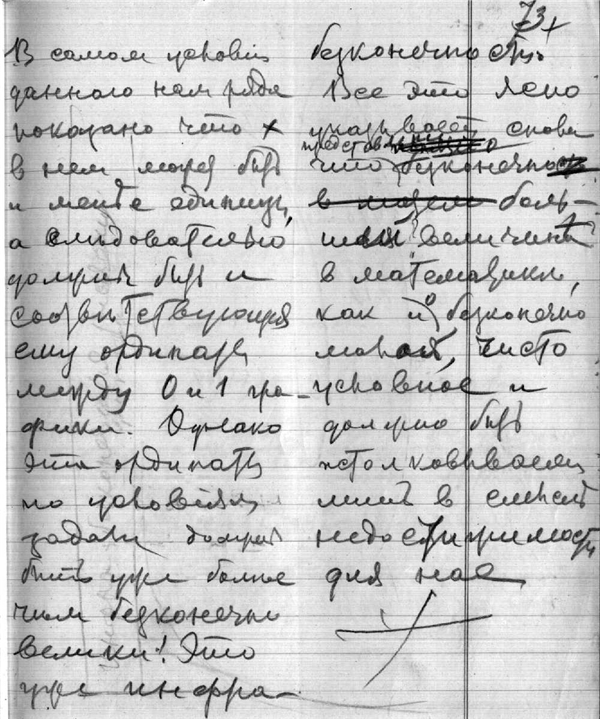 73
В самом условии
данного нам ряда
показано что x
в нем может быть
и менее единицы,
а следовательно
должен быть и
соответствующая
ему ордината
между 0 и 1 гра-
фики. Однако
эта ордината
по условиям
задачи должна
быть уже более
чем безконечно
велики! Это
уже инфра-
безконечность.
Все это ясно
указывает снова
что представление о
безконечно
в модели боль-
шой величине
в математике,
как и о безконечно
малой, чисто
условное и
должно быть
истолковываемо
лишь в смысле
недостижимости
для нас